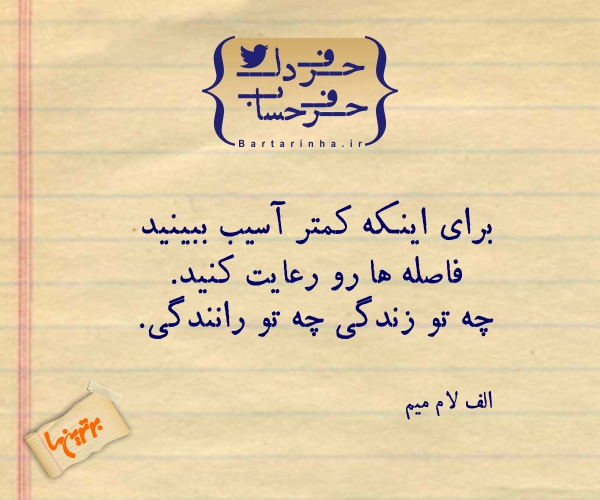 حرف دل
حرف حساب
Bartarinha.ir
برای اینکه کمتر آسیب ببینید
فاصله ها رو رعایت کنید.
چه تو زندگی چه تو رانندگی.
الف لام میم
برترین‌ها